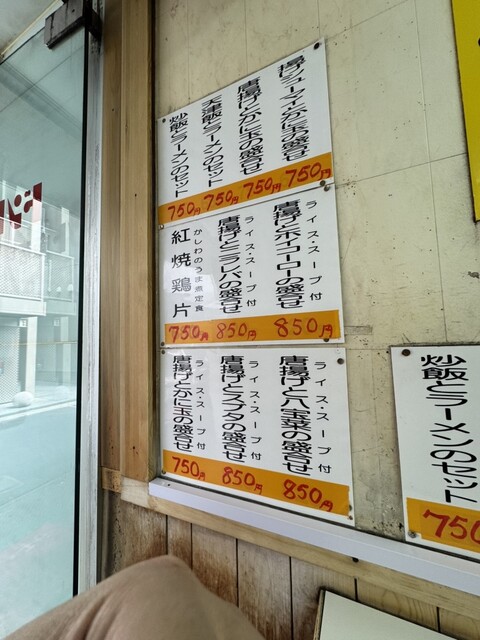 揚げシューマイとかに玉の盛合せ
750円
唐揚げとかに玉の盛合せ
750円
天津飯とラーメンのセット
750円
炒飯とラーメンのセット
750円
ライス・スープ付
唐揚げとホイコーローの盛合せ
850円
ライス・スープ付
唐揚げとニラレバの盛合せ
850円
かしわのうま煮定食
紅焼鶏片
750円
ライス・スープ付
唐揚げと八宝菜の盛合せ
850円
ライス・スープ付
唐揚げとスブタの盛合せ
850円
ライス・スープ付
唐揚げとかに玉の盛合せ
750円
炒飯とラーメンのセット
750